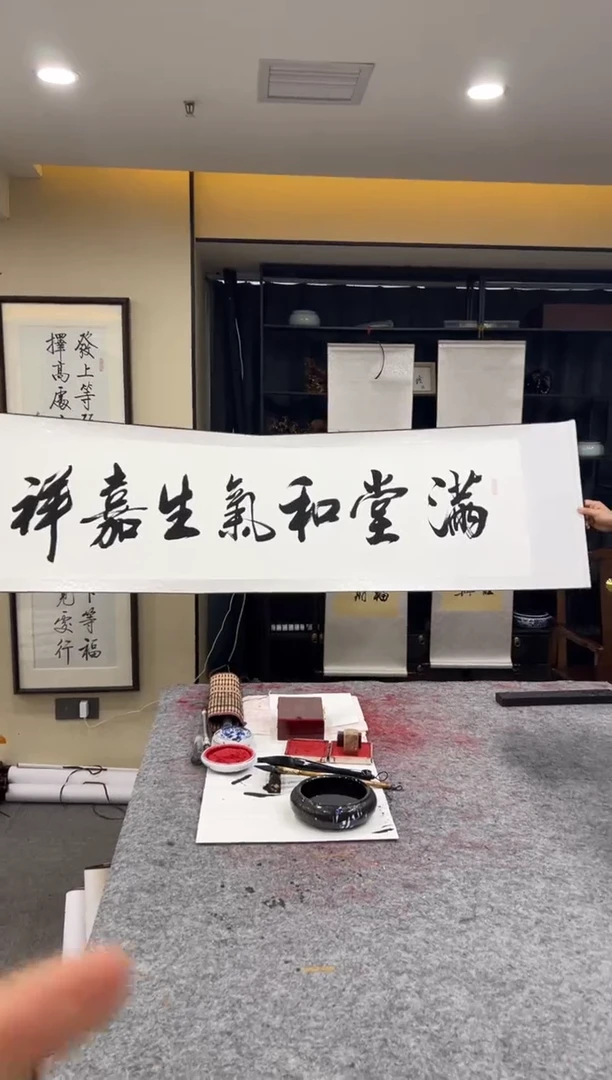 滿堂和氣生嘉祥
發上等
擇高處
下等福
處行